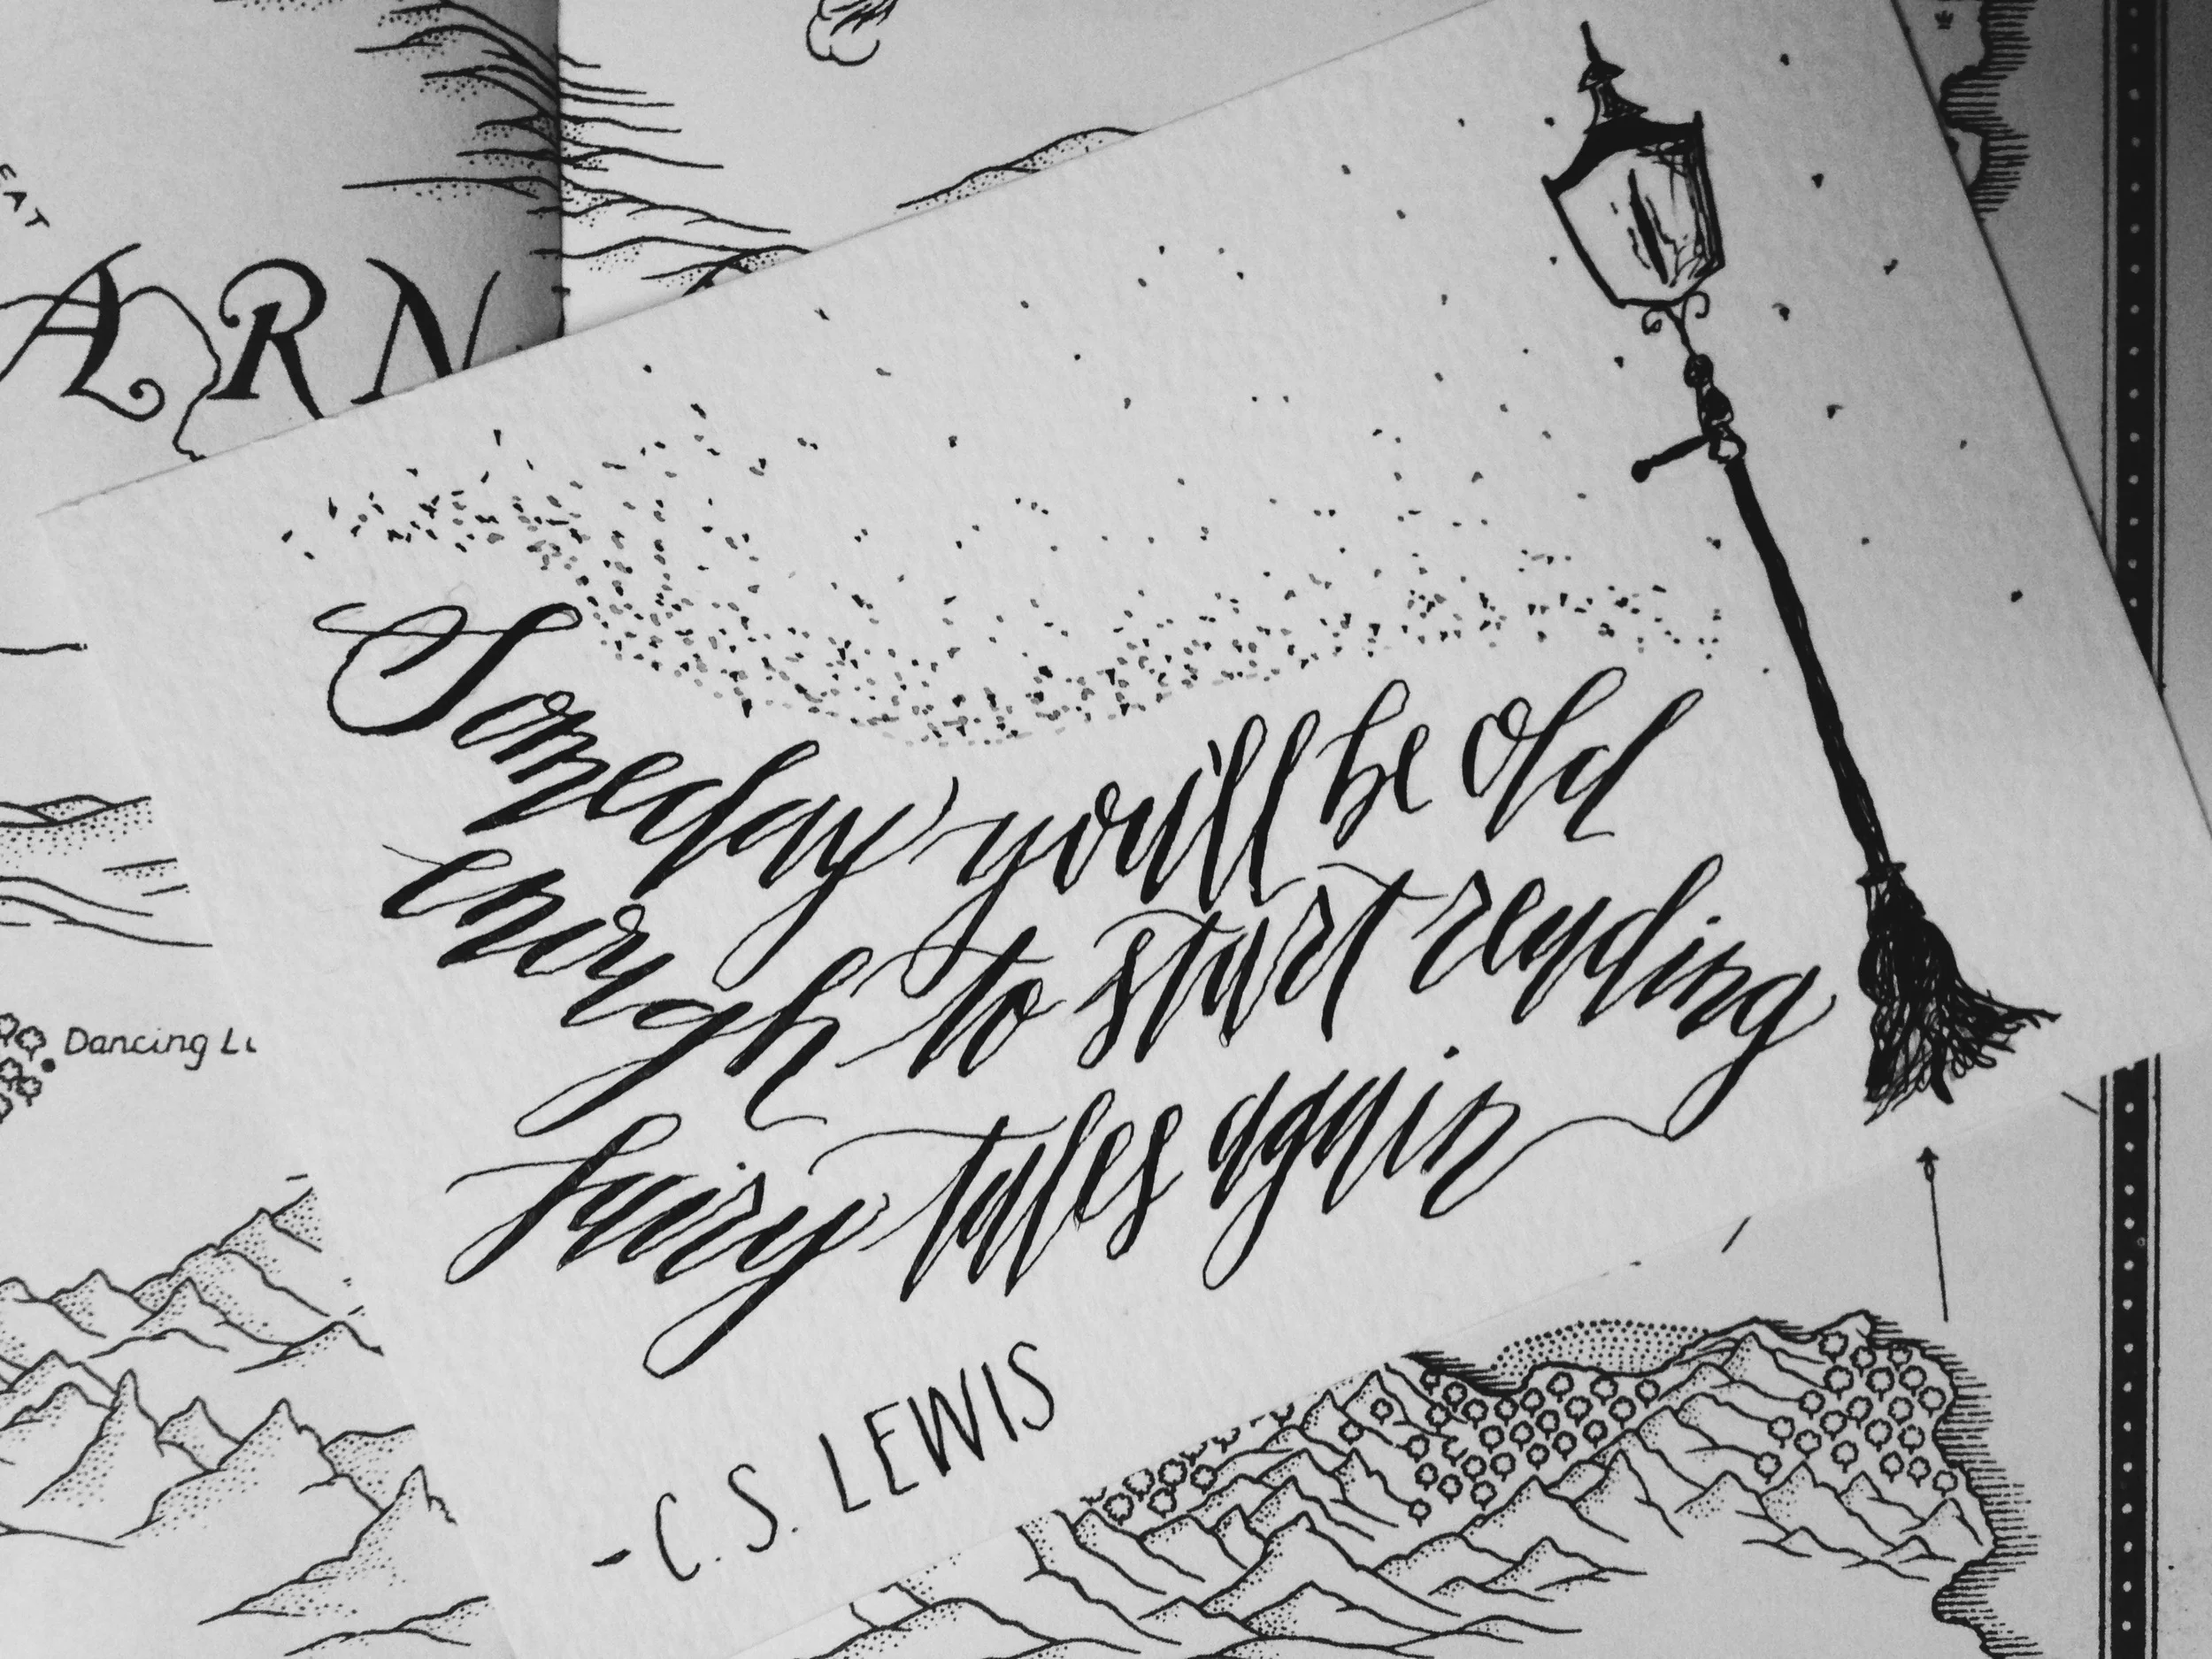 EAT
ARN
Someday you'll be old
enough to start reading
fairy tales again
-C.S. LEWIS
Dancing